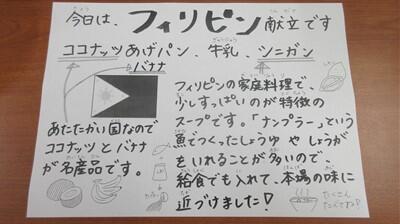 今日は、フィリピン献立です
ココナッツあげパン、牛乳、シニガン
バナナ
あたたかい国なので
ココナッツとバナナ
が名産品です。
フィリピンの家庭料理で、
少しすっぱいのが特徴の
スープです。「ナンプラー」という
魚でつくったしょうゆやしょうが
をいれることが多いので、
給食でも入れて、本場の味に
近づけました!
たくさん